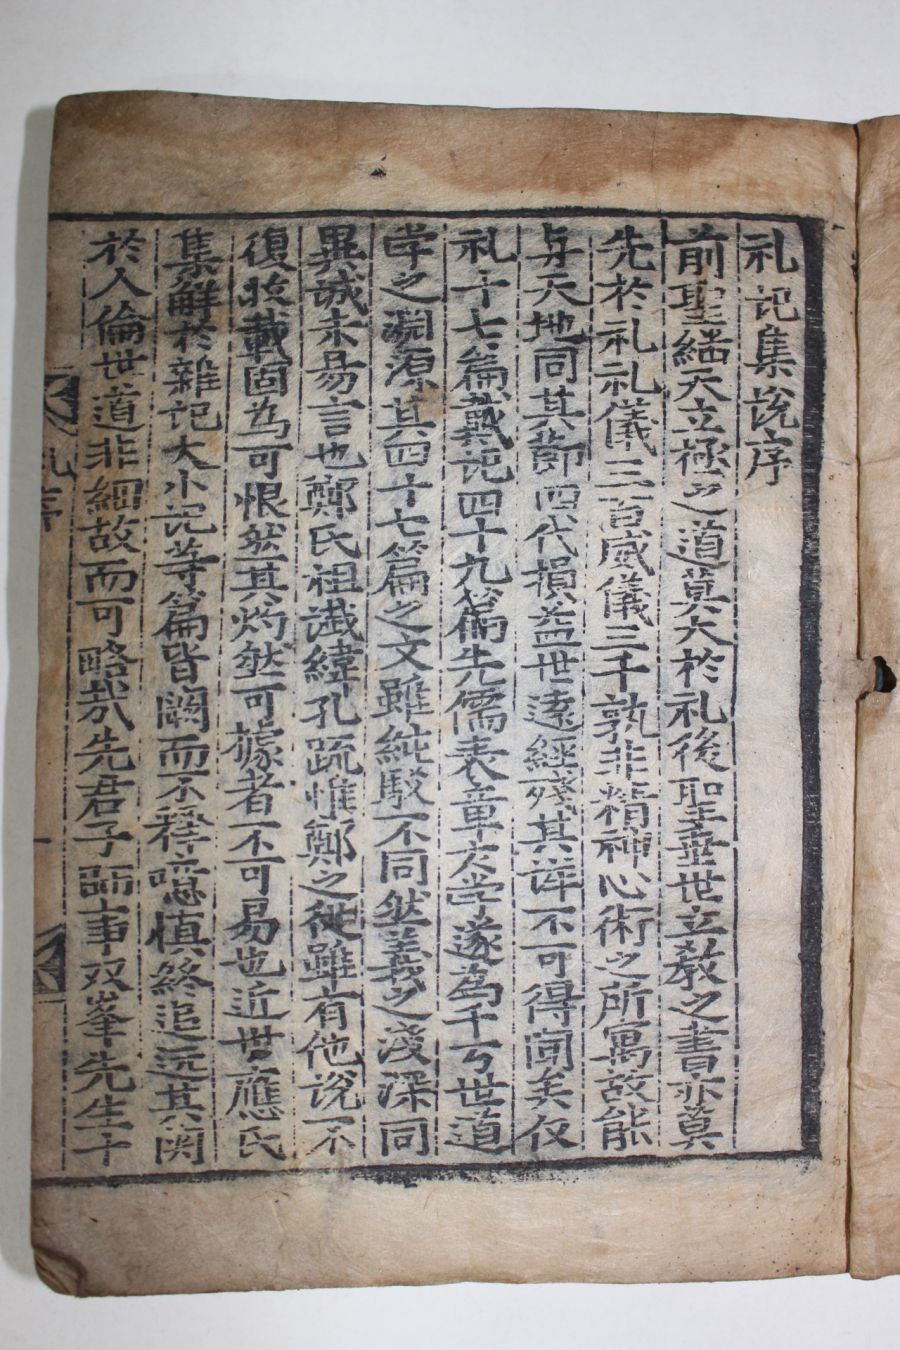 礼記集説序
前聖継天立極之道莫大於礼後聖垂世立教之書亦莫
先於礼礼儀三百威儀三千孰非精神心術之所寓故能
与天地同其節四代損益世遠経残其詳不可得聞矣仅
礼十七篇戴記四十九篇先儒表章庸学遂為千万世道
学之淵源其四十七篇之文雖純駁不同然義之浅深同
異誠未易言也鄭氏祖讖緯孔疏惟鄭之従雖有他説不
復收載固為可恨然其灼然可據者不可易也近世應氏
集解於雜記大小記等篇皆闕而不釋噫慎終追远其関
於人倫世道非細故而可略哉先君子師事双峯先生十
礼序
一